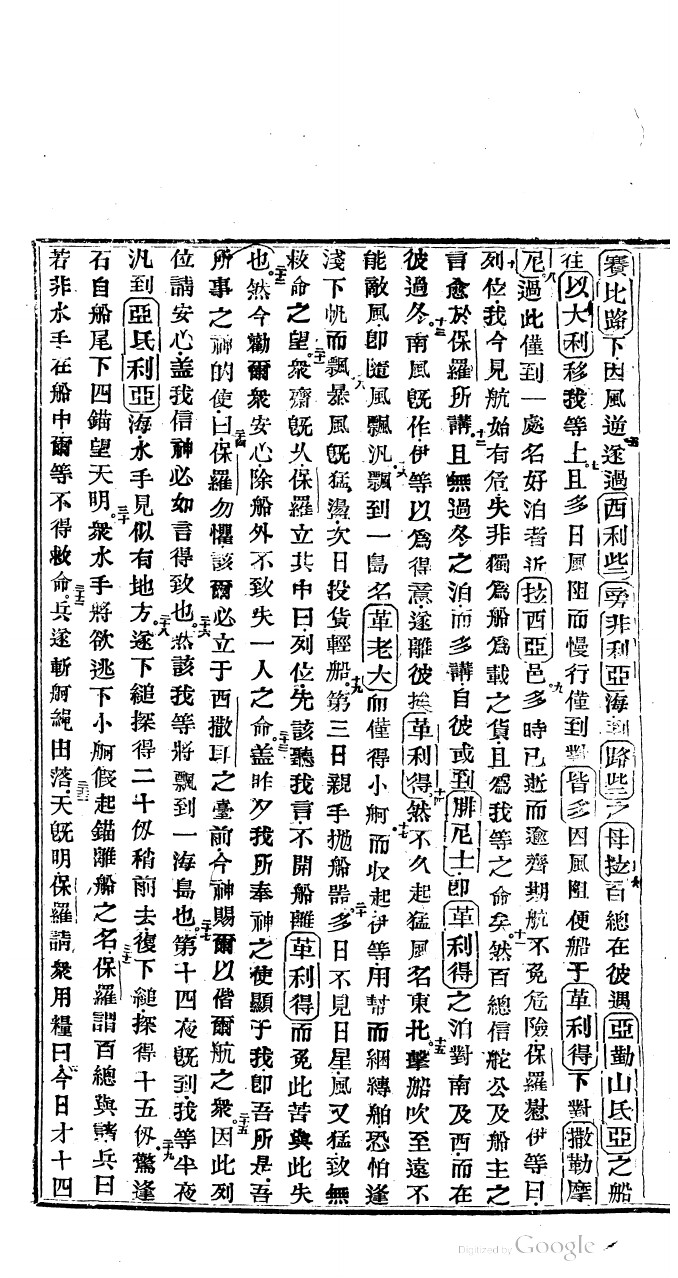 賽比路下因風逆五遂過西利些旁非利亞海到路些之母拉六百總在彼遇亞勤山氏亞之船
往以大利移我等上七且多日風阻而慢行僅到對皆多因風阻便船于革利得下對撒勒摩
尼八過此僅到一處名好泊者近拉西亞邑九多時已逝而逾齊期航不免危險保羅慰伊等曰
十列位我今見航始有危失非獨爲船爲載之貨且爲我等之命矣十一然百總信舵公及船主之
言愈於保羅所講十二且無過冬之泊而多講自彼或到腓尼士即革利得之泊對南及西而在
彼過冬十三南風旣作伊等以爲得意遂離彼挨革利得十四然不久起猛風名東北十五擊船吹至遠不
能敵風卽隨風飄汎十六飄到一島名革老大而僅得小舸而收起十七伊等用幫而綑縛船恐怕逢
淺下帆而飄十八暴風旣猛盪次日投貨輕船十九第三日親手拋船器二十多日不見日星風又猛致無
救命之望二十一衆齋旣久保羅立其中曰列位先該聽我言不開船離革利得而免此苦與此失
也二十二然今勸爾衆安心除船外不致失一人之命二十三蓋昨夕我所奉神之使顯于我卽吾所是吾
所事之神的使二十四曰保羅勿懼該爾必立于西撒耳之臺前今神賜爾以偕爾航之衆二十五因此列
位請安心蓋我信神必如言得致也二十六然該我等將飄到一海島也二十七第十四夜旣到我等半夜
汎到亞氏利亞海水手見似有地方二十八遂下縋探得二十仭稍前去復下縋探得十五仭二十九驚逢
石自船尾下四錨望天明三十衆水手將欲逃下小舸假起錨離船之名三十一保羅謂百總與諸兵曰
若非水手在船中爾等不得救命三十二兵遂斬舸繩由落三十三天旣明保羅請衆用糧曰今日才十四
Digitized by Google